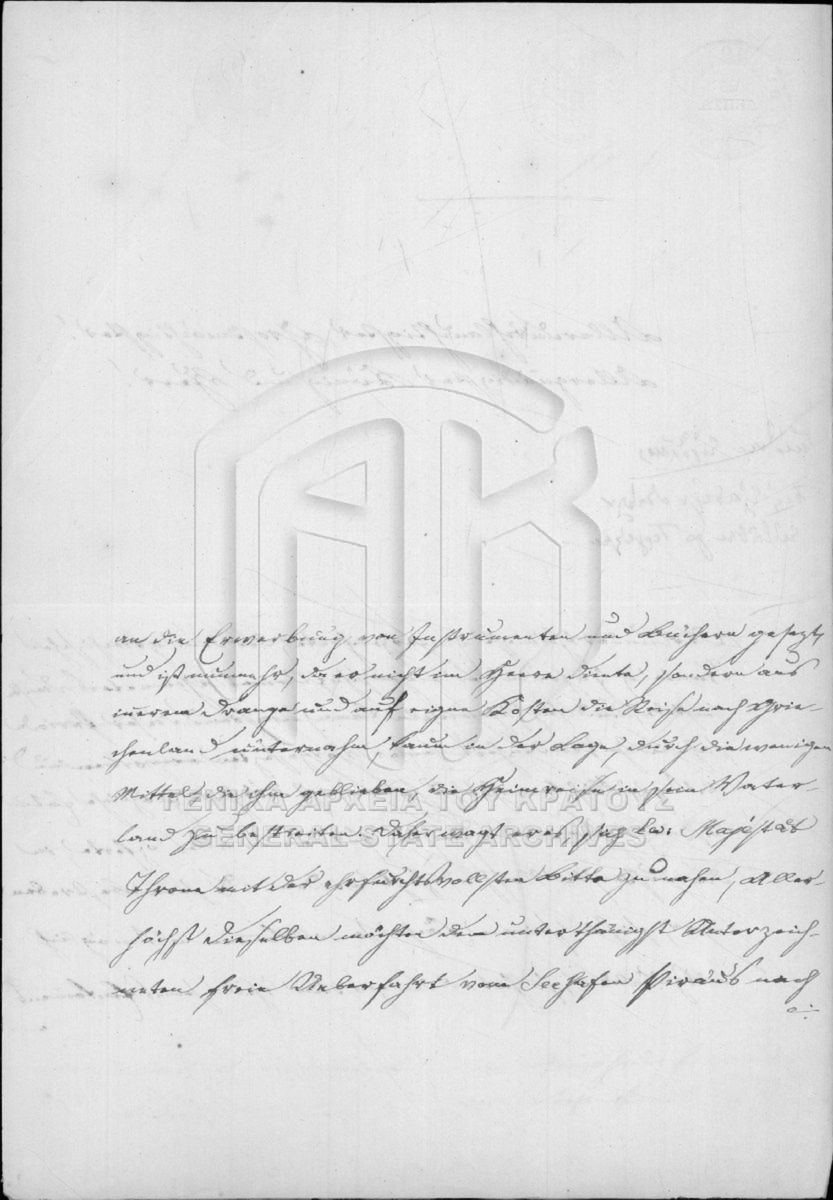 an die Erwerbung von Instrumenten und Büchern gesezt,
und ist nunmehr, da er nicht im Heere diente, sondern aus
innerem Drange und auf eigne Kosten die Reise nach Grie-
chenland unternahm, kaum in der Lage, durch die wenigen
Mittel die ihm geblieben, die Heimreise in sein Vater-
land zu bestreiten. Daher wagt er es, sich Ew: Majestät
Throne mit der ehrfurchtsvollsten Bitte zu nahen, Aller-
höchst dieselben möchten dem unterthänigst Unterzeich-
neten freie Ueberfahrt vom Seehafen Piräus nach
ΓΕΝΙΚΑ ΑΡΧΕΙΑ ΤΟΥ ΚΡΑΤΟΥΣ
GENERAL STATE ARCHIVES